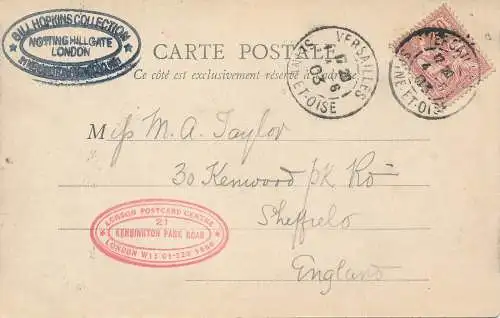 BILL HOPKINS COLLECTION
NOTTING HILL GATE
LONDON
CARTE POSTALE
Ce côté est exclusivement réservé à
VERSAILLES
17 20
6
03
SEINE-ET-OISE
Miss M. A. Taylor
30 Kenwood Pk Rd
Sheffield
England
LONDON POSTCARD CENTRE
21
KENSINGTON PARK ROAD
LONDON W11 01-229 1888